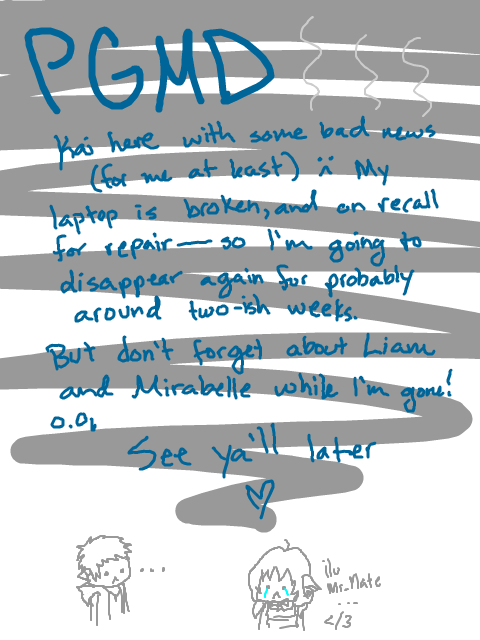 PGMD
Kai here with some bad news
(for me at least) :( My
laptop is broken, and on recall
for repair — so I'm going to
disappear again for probably
around two-ish weeks.
But don't forget about Liam
and Mirabelle while I'm gone!
o.o,
See ya'll later
♡
...
ilu
Mr. Mate
...
</3